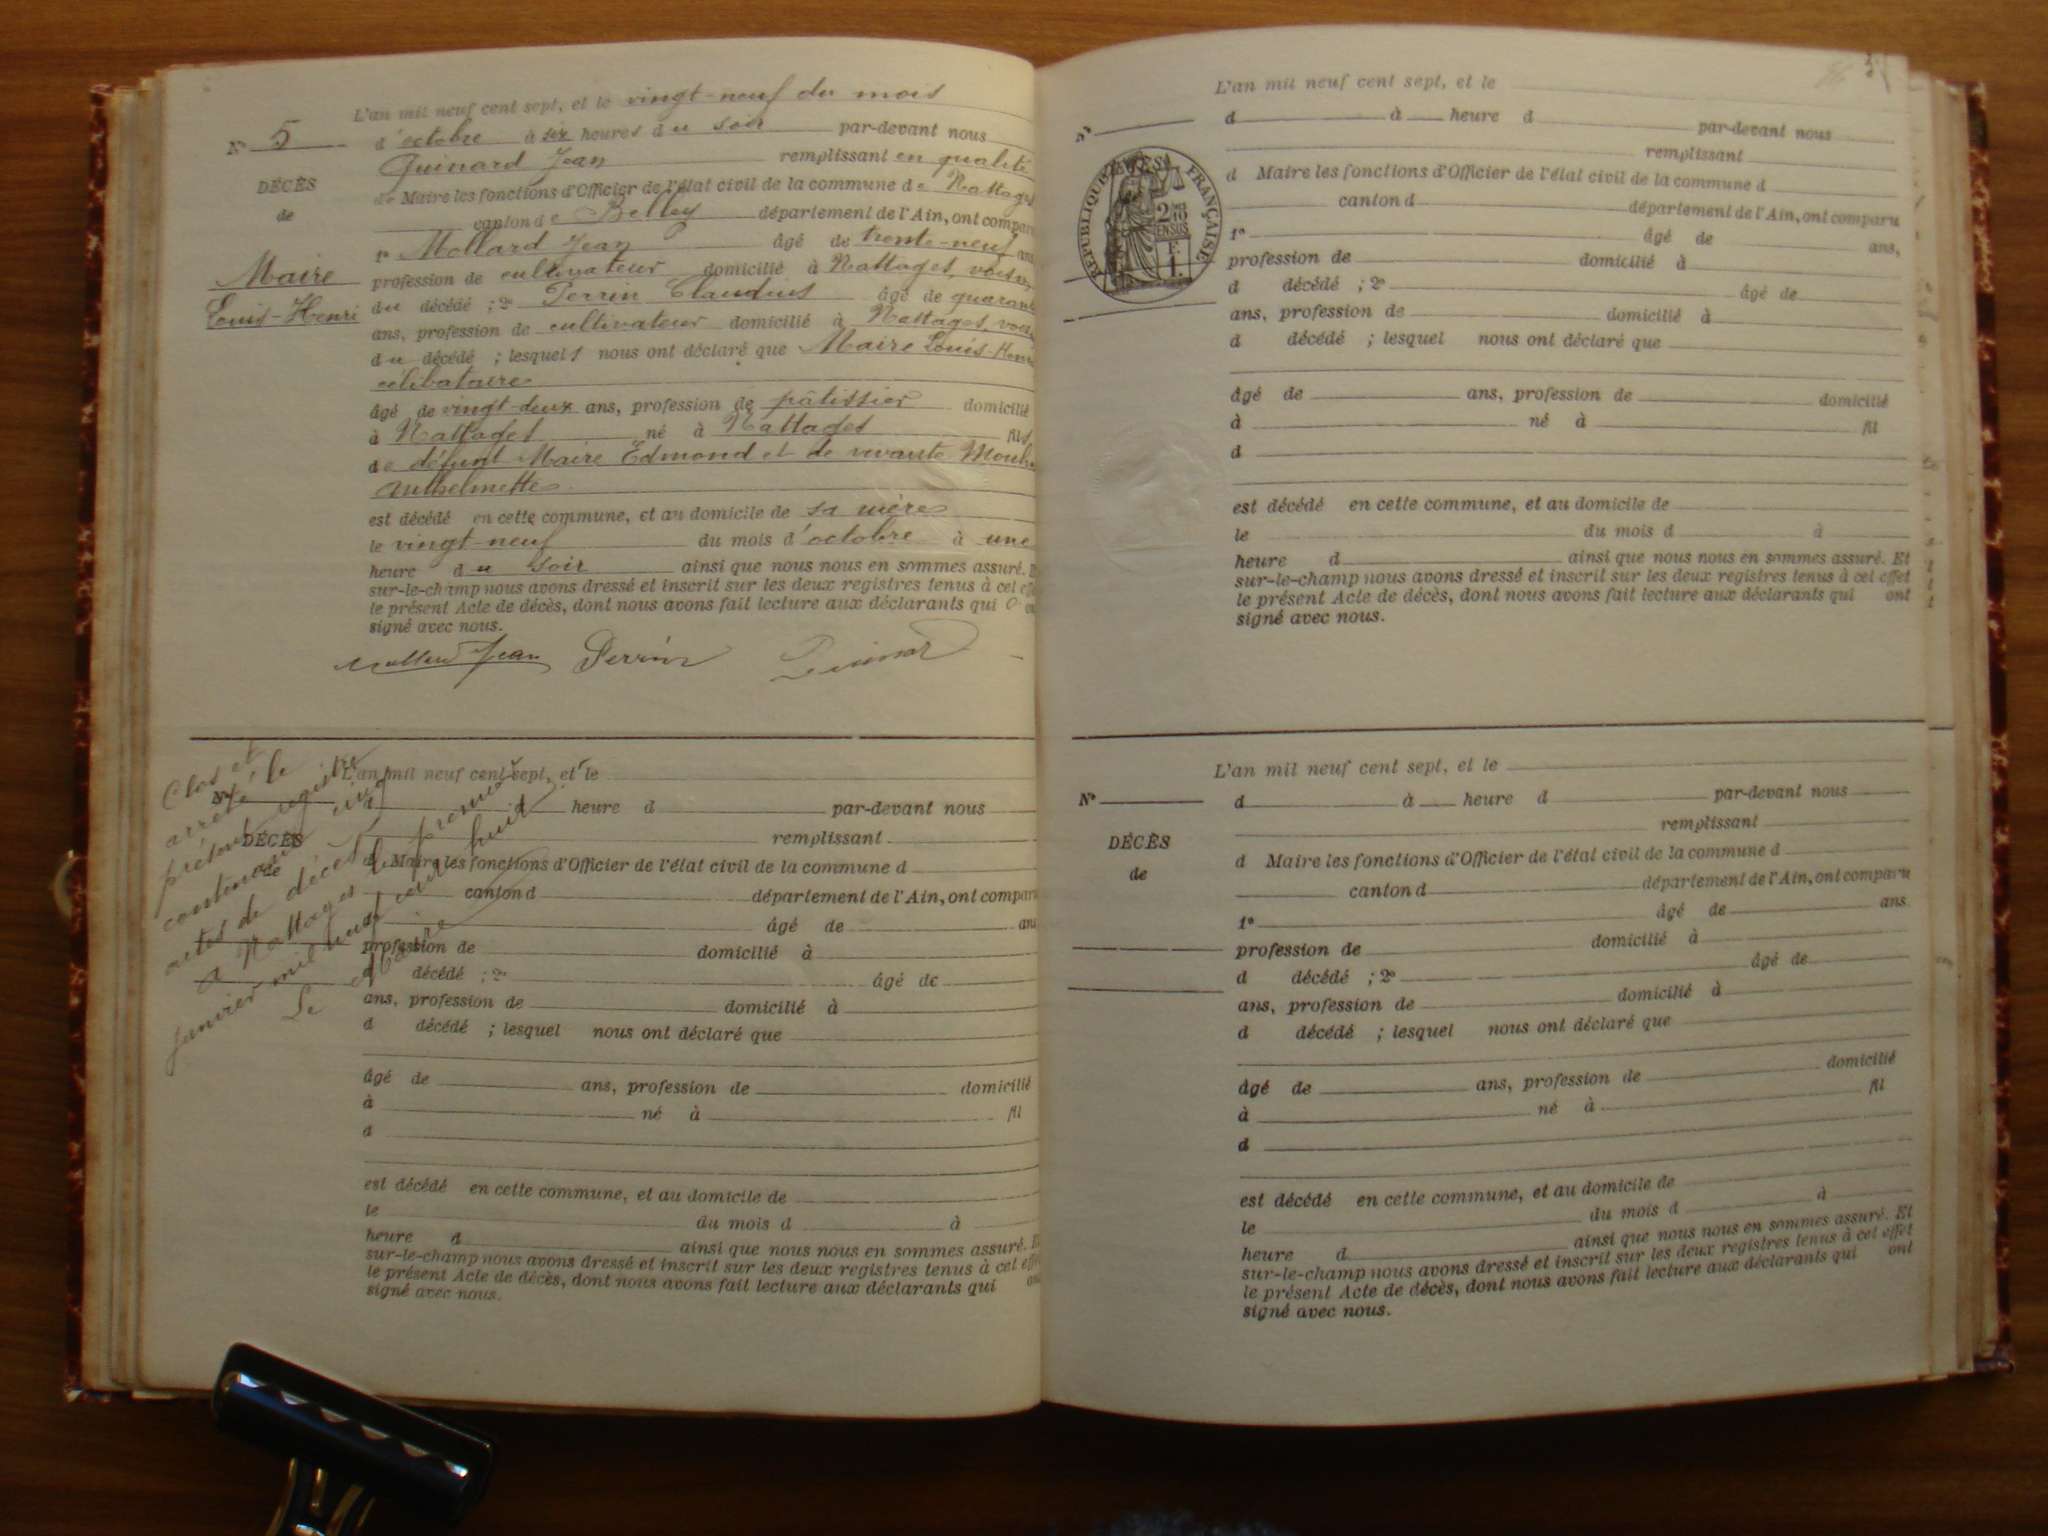 L'an mil neuf cent sept, et le vingt-neuf du mois
N° 5
d'octobre à six heures du soir par-devant nous
Guinard Jean remplissant en qualité
DÉCÈS
de
de Maire les fonctions d'Officier de l'état civil de la commune de Nattages
canton de Belley département de l'Ain, ont comparu
1° Mollard Jean âgé de trente-neuf ans
Maire
Louis-Henri
profession de cultivateur domicilié à Nattages, voisin
du décédé ; 2° Perrin Claudius âgé de quarante
ans, profession de cultivateur domicilié à Nattages, voisin
du décédé ; lesquels nous ont déclaré que Maire Louis-Henri
célibataire
âgé de vingt-deux ans, profession de pâtissier domicilié
à Nattages né à Nattages fils
de défunt Maire Edmond et de vivante
est décédé en cette commune, et au domicile de sa mère
le vingt-neuf du mois d'octobre à une
heure du soir ainsi que nous nous en sommes assuré. Et
sur-le-champ nous avons dressé et inscrit sur les deux registres tenus à cet effet
le présent Acte de décès, dont nous avons fait lecture aux déclarants qui ont
signé avec nous.
Mollard Jean Perrin Guinard
Clos et
arrêté le
présent registre
contenant cinq
actes de décès
à Nattages le premier
janvier mil neuf cent huit
Le Maire
L'an mil neuf cent sept, et le
N°
d à heure d par-devant nous
remplissant
DÉCÈS
de
d Maire les fonctions d'Officier de l'état civil de la commune d
canton d département de l'Ain, ont comparu
âgé de ans
profession de domicilié à
d décédé ; 2° âgé de
ans, profession de domicilié à
d décédé ; lesquel nous ont déclaré que
âgé de ans, profession de domicilié
à né à fil
d
est décédé en cette commune, et au domicile de
le du mois d à
heure d ainsi que nous nous en sommes assuré. Et
sur-le-champ nous avons dressé et inscrit sur les deux registres tenus à cet effet
le présent Acte de décès, dont nous avons fait lecture aux déclarants qui ont
signé avec nous.
L'an mil neuf cent sept, et le
N°
d à heure d par-devant nous
remplissant
RÉPUBLIQUE FRANÇAISE
2/10 EN SUS
1 F.
d Maire les fonctions d'Officier de l'état civil de la commune d
canton d département de l'Ain, ont comparu
1° âgé de ans,
profession de domicilié à
d décédé ; 2° âgé de
ans, profession de domicilié à
d décédé ; lesquel nous ont déclaré que
âgé de ans, profession de domicilié
à né à fil
d
est décédé en cette commune, et au domicile de
le du mois d à
heure d ainsi que nous nous en sommes assuré. Et
sur-le-champ nous avons dressé et inscrit sur les deux registres tenus à cet effet
le présent Acte de décès, dont nous avons fait lecture aux déclarants qui ont
signé avec nous.
L'an mil neuf cent sept, et le
N°
d à heure d par-devant nous
remplissant
DÉCÈS
de
d Maire les fonctions d'Officier de l'état civil de la commune d
canton d département de l'Ain, ont comparu
1° âgé de ans
profession de domicilié à
d décédé ; 2° âgé de
ans, profession de domicilié à
d décédé ; lesquel nous ont déclaré que
âgé de ans, profession de domicilié
à né à fil
d
est décédé en cette commune, et au domicile de
le du mois d à
heure d ainsi que nous nous en sommes assuré. Et
sur-le-champ nous avons dressé et inscrit sur les deux registres tenus à cet effet
le présent Acte de décès, dont nous avons fait lecture aux déclarants qui ont
signé avec nous.